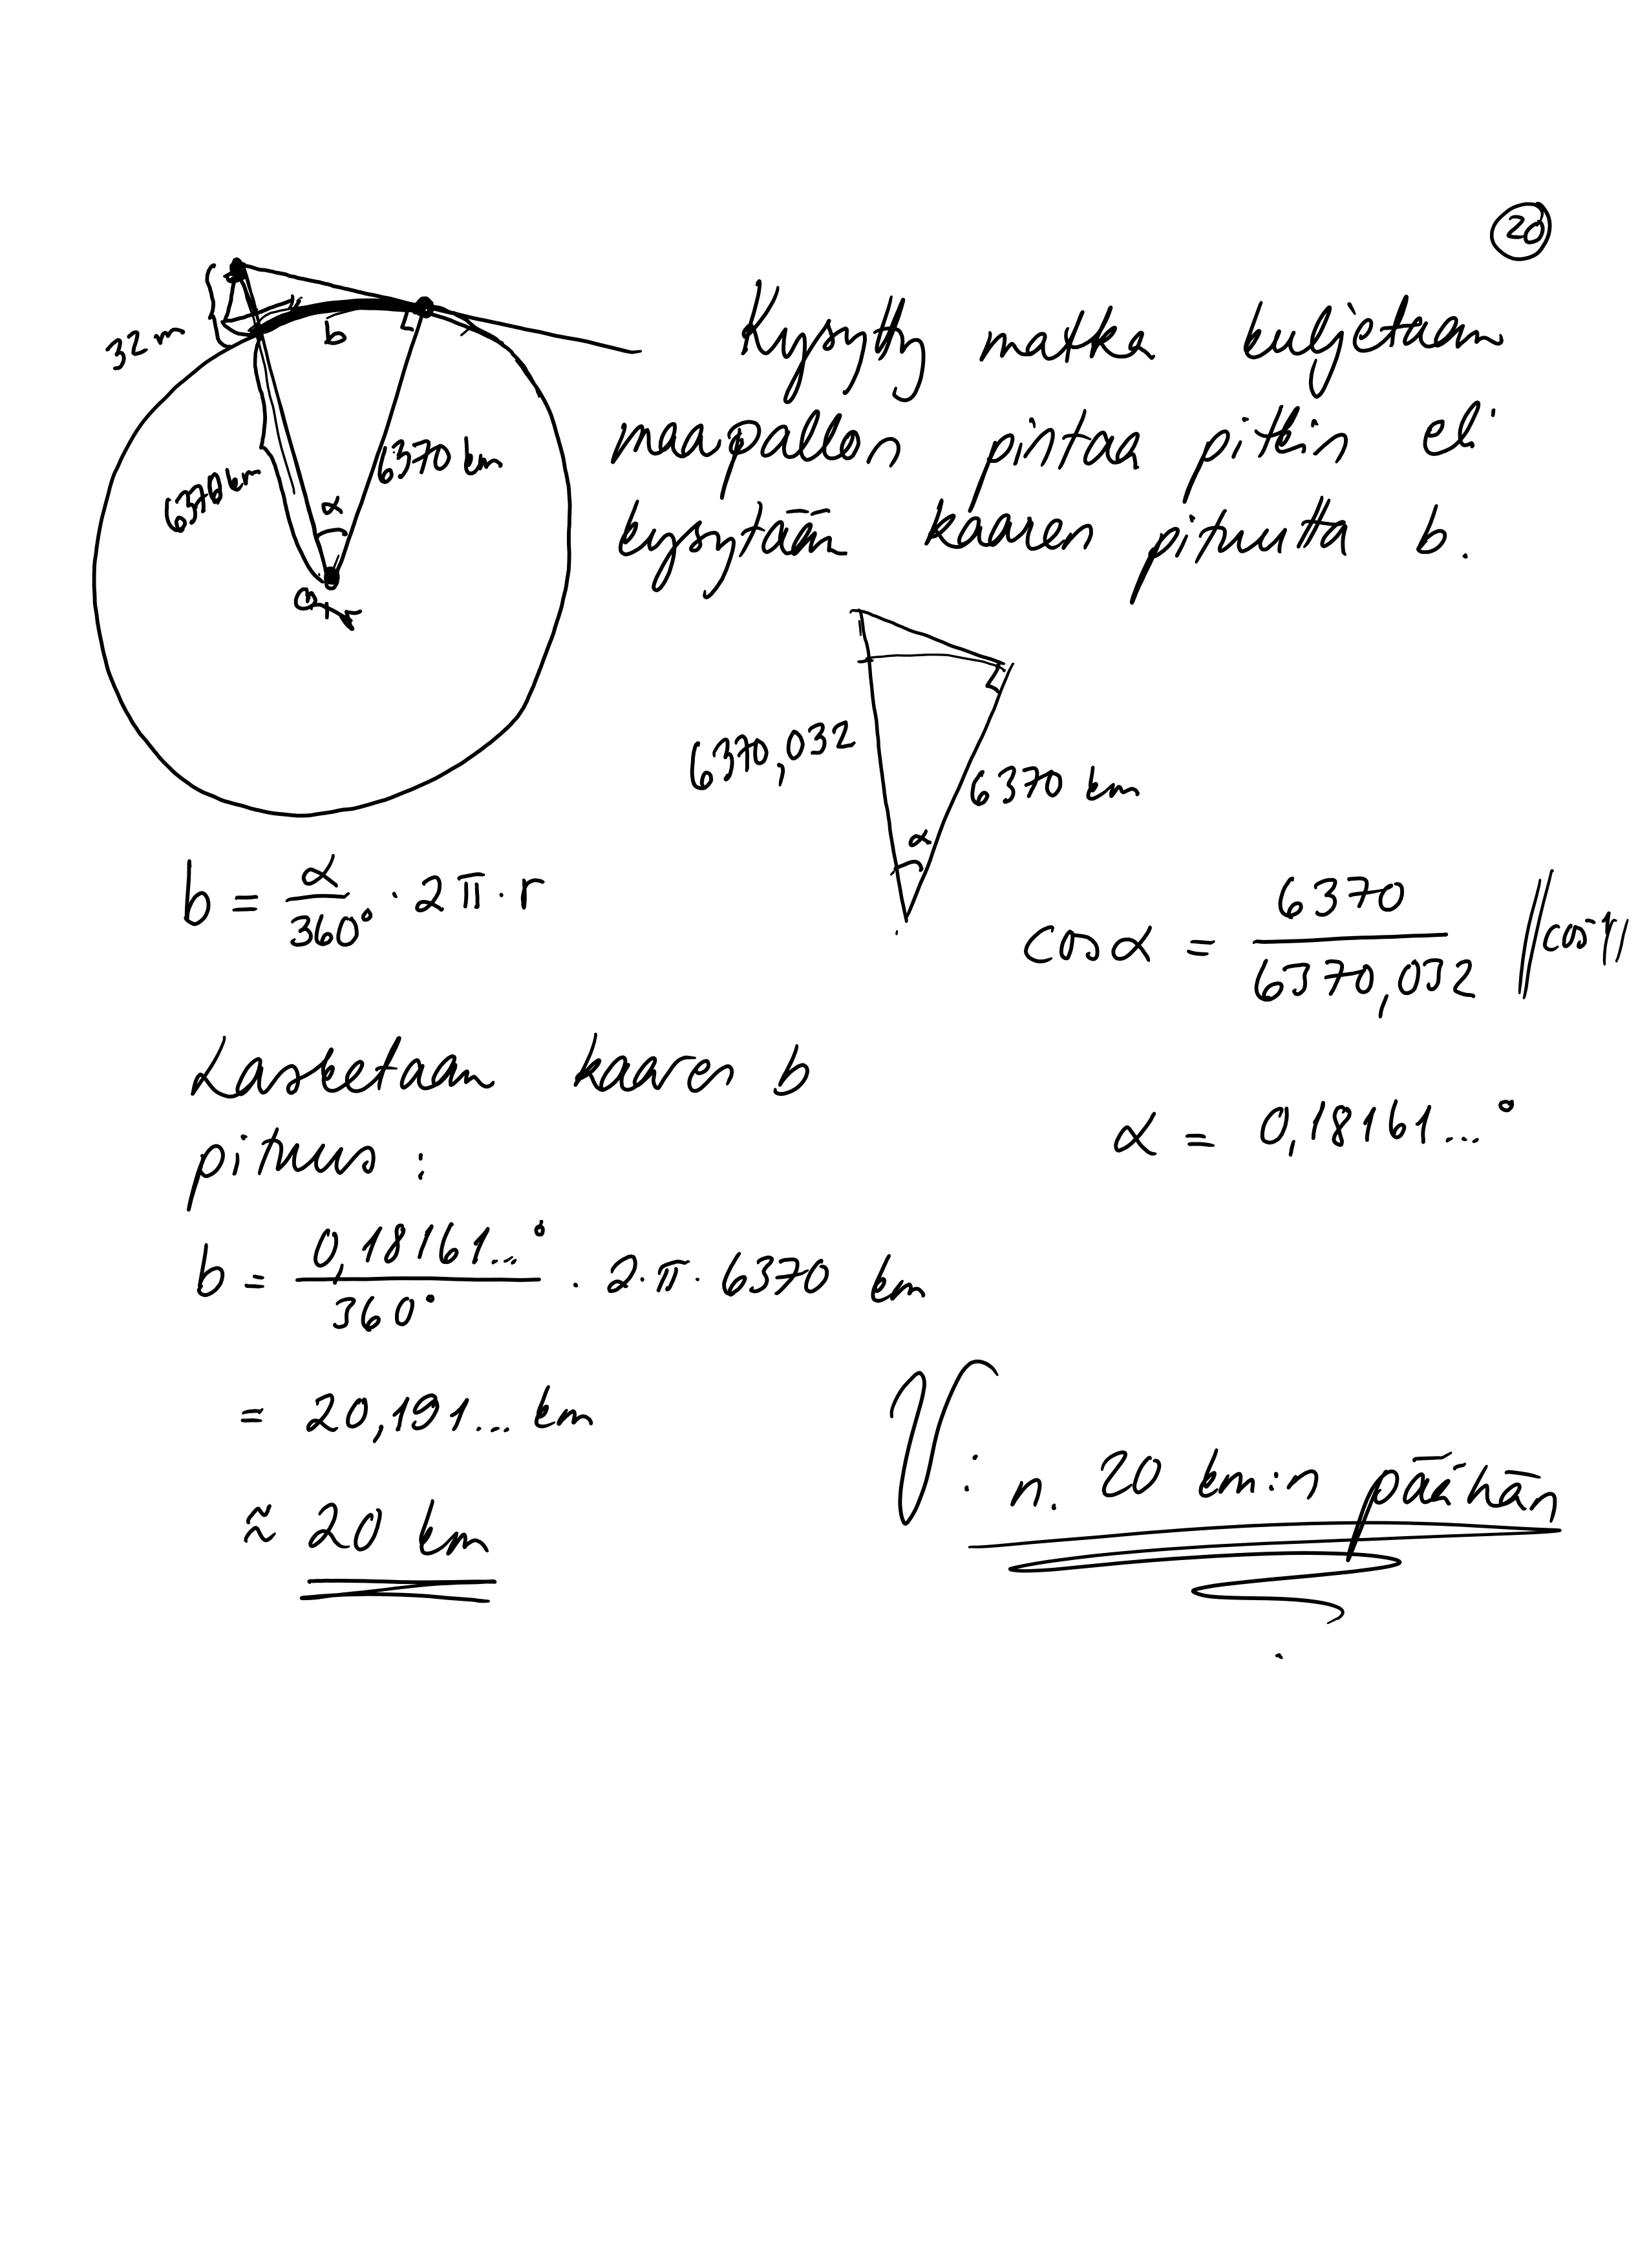 20
32 m
b
6370 km
6370 km
α
Kysytty matka kuljetaan
maapallon pintaa pitkin eli
kysytään kaaren pituutta b.
6370,032
6370 km
α
b = α/360° · 2π · r
cos α = 6370/6370,032 ||cos⁻¹()
Lasketaan kaaren b
pituus :
α = 0,18161...°
b = 0,18161...°/360° · 2·π·6370 km
= 20,191... km
≈ 20 km
V: n. 20 km:n päähän